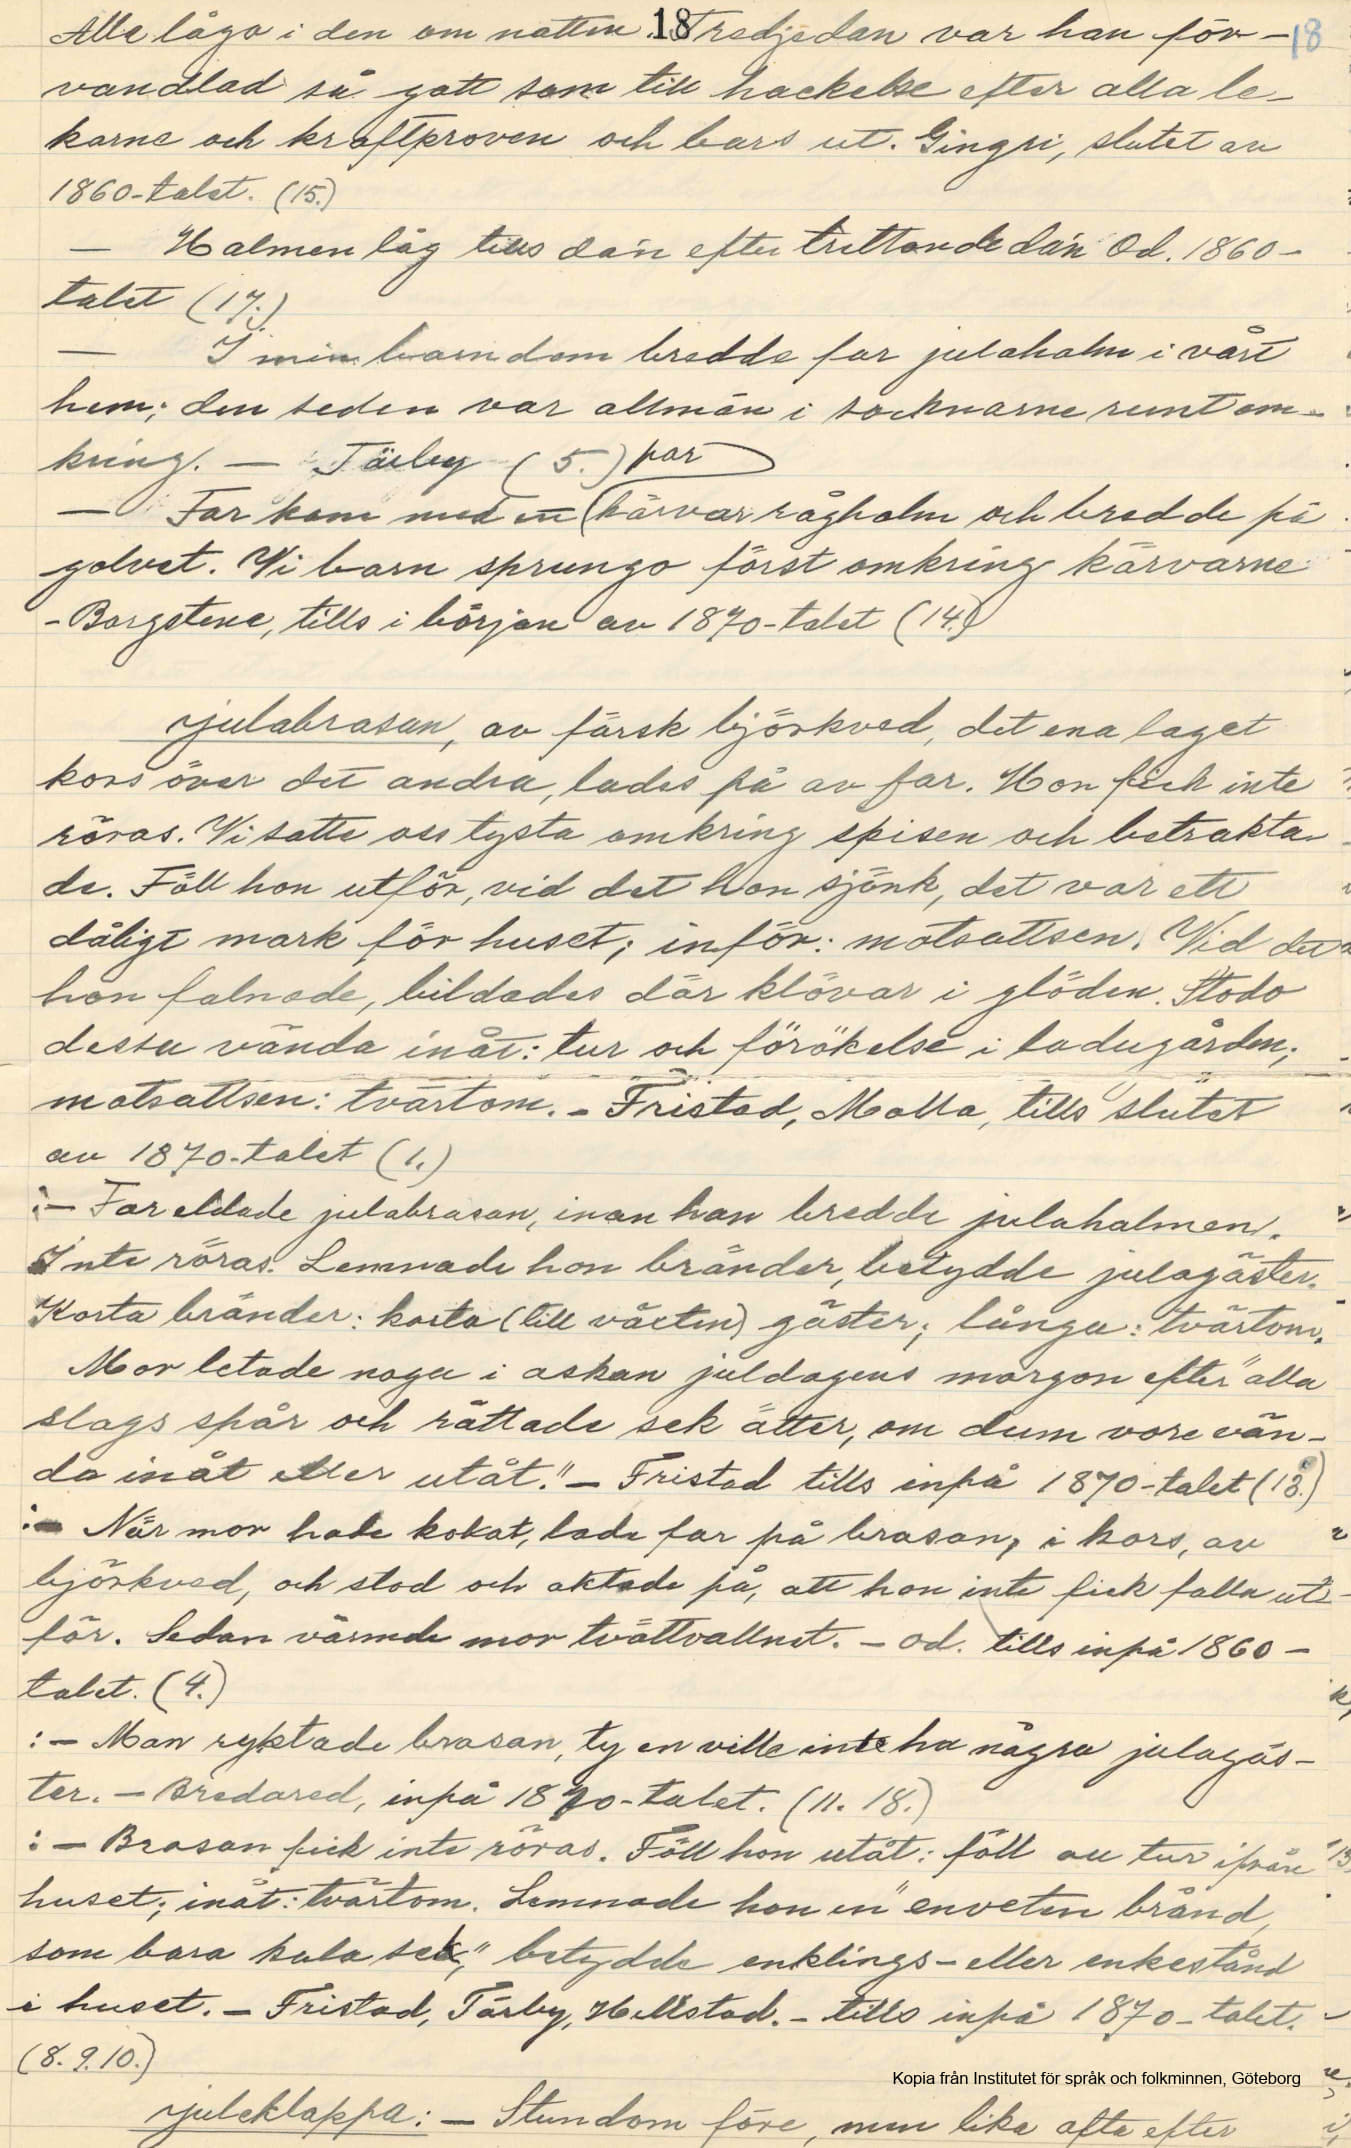 Alla lågo i den om natten. 18 Tredjedan var han för- 18
vandlad så gott som till hackelse efter alla le-
karne och kraftproven och bars ut. Gingri, slutet av
1860-talet. (15.)
— Halmen låg tills dan efter trettande dan Od. 1860-
talet (17.)
— I min barndom bredde far julahalm i vårt
hem; den seden var allmän i socknarne runt om-
kring. — Tärby (5.) par
— Far kom med en kärvar råghalm och bredde på
golvet. Vi barn sprungo först omkring kärvarne
- Borgstena, tills i början av 1870-talet (14.)
julabrasan, av färsk björkved, det ena laget
kors över det andra, lades på av far. Hon fick inte
röras. Vi satte oss tysta omkring spisen och betrakta-
de. Föll hon utför, vid det hon sjönk, det var ett
dåligt mark för huset; inför: motsattsen. Vid det
hon falnade, bildades där klövar i glöden. Stodo
dessa vända inåt: tur och förökelse i ladugården;
motsattsen: tvärtom. - Fristad, Molla, tills slutet
av 1870-talet (1.)
:- Far eldade julabrasan, inan han bredde julahalmen.
Inte röras. Lemnade hon bränder, betydde julagäster.
Korta bränder: korta (till växten) gäster; långa: tvärtom.
Mor letade noga i askan juldagens morgon efter "alla
slags spår och rättade sek ätter, om dum vore vän-
da inåt eller utåt." - Fristad tills inpå 1870-talet (13.)
:- När mor hade kokat, lade far på brasan, i kors, av
björkved, och stod och aktade på, att hon inte fick falla ut-
för. Sedan värmde mor tvättvattnet. - Od. tills inpå 1860-
talet. (4.)
:- Man ryktade brasan, ty en ville inte ha några julagäs-
ter. - Bredared, inpå 1870-talet. (11. 18.)
:- Brasan fick inte röras. Föll hon utåt: föll au tur ifrån
huset; inåt: tvärtom. Lemnade hon en "enveten brånd,
som bara kula sek," betydde enklings- eller enkestånd
i huset. - Fristad, Tärby, Hellstad. - tills inpå 1870-talet.
(8. 9. 10.)
Kopia från Institutet för språk och folkminnen, Göteborg
juleklappa: - Stundom före, men lika ofta efter